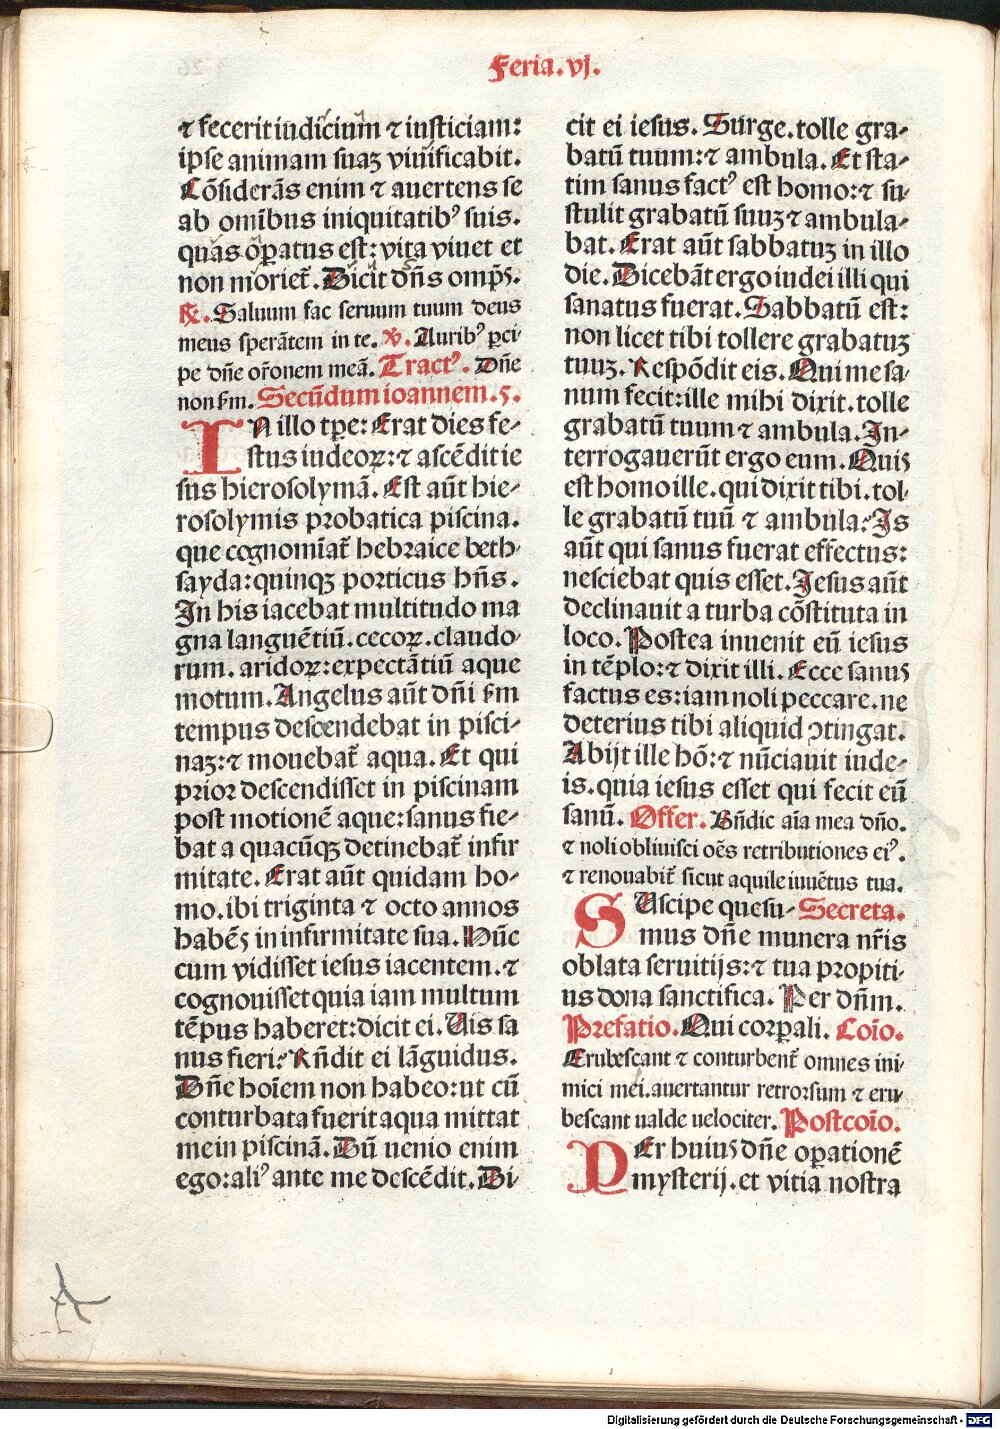 Feria.vj.
⁊ fecerit iudicium ⁊ iusticiam:
ipse animam suaꝫ viuificabit.
Cõsiderãs enim ⁊ auertens se
ab omĩbus iniquitatibꝰ suis.
quãs oꝑatus est: vita viuet et
non morieť. Dicit dñs omp̃s.
℟. Saluum fac seruum tuum deus
meus sperãtem in te. ℣. Auribꝰ ꝑci
pe dñe or̃onem meã. Tractꝰ. Dñe
non ẜm. Secũdum ioannem.5.
IN illo tꝑe: Erat dies fe-
stus iudeoꝝ: ⁊ ascẽdit ie
sus hierosolymã. Est aũt hie-
rosolymis probatica piscina.
que cognomĩať hebraice beth-
sayda: quinqꝫ porticus hñs.
In his iacebat multitudo ma
gna languẽtiũ. cecoꝝ. claudo-
rum. aridoꝝ: expectãtiũ aque
motum. Angelus aũt dñi ẜm
tempus descendebat in pisci-
naꝫ: ⁊ mouebať aqua. Et qui
prior descendisset in piscinam
post motionẽ aque: sanus fie-
bat a quacũqꝫ detinebať infir
mitate. Erat aũt quidam ho-
mo. ibi triginta ⁊ octo annos
habẽs in infirmitate sua. Hũc
cum vidisset iesus iacentem. ⁊
cognouisset quia iam multum
tẽpus haberet: dicit ei. Uis sa
nus fieri? Rñdit ei lãguidus.
Dñe hoĩem non habeo: ut cũ
conturbata fuerit aqua mittat
me in piscinã. Dũ uenio enim
ego: aliꝰ ante me descẽdit. Di-
cit ei iesus. Surge. tolle gra-
batũ tuum: ⁊ ambula. Et sta-
tim sanus factꝰ est homo: ⁊ su-
stulit grabatũ suuꝫ ⁊ ambula-
bat. Erat aũt sabbatuꝫ in illo
die. Dicebãt ergo iudei illi qui
sanatus fuerat. Sabbatũ est:
non licet tibi tollere grabatuꝫ
tuuꝫ. Respõdit eis. Qui me sa-
num fecit: ille mihi dixit. tolle
grabatũ tuum ⁊ ambula. In-
terrogauerũt ergo eum. Quis
est homo ille. qui dixit tibi. tol-
le grabatũ tuũ ⁊ ambula? Is
aũt qui sanus fuerat effectus:
nesciebat quis esset. Iesus aũt
declinauit a turba cõstituta in
loco. Postea inuenit eũ iesus
in tẽplo: ⁊ dixit illi. Ecce sanus
factus es: iam noli peccare. ne
deterius tibi aliquid ↄtingat.
Abijt ille hõ: ⁊ nũciauit iude-
is. quia iesus esset qui fecit eũ
sanũ. Offer. Bñdic aĩa mea dño.
⁊ noli obliuisci oẽs retributiones eiꝰ.
⁊ renouabiť sicut aquile iuuẽtus tua.
SUscipe quesu- Secreta.
mus dñe munera nr̃is
oblata seruitijs: ⁊ tua propiti-
us dona sanctifica. Per dñm.
Prefatio. Qui corꝑali. Coĩo.
Erubescant ⁊ conturbenť omnes ini-
mici mei. auertantur retrorsum ⁊ eru-
bescant ualde uelociter. Postcoĩo.
PEr huius dñe oꝑationẽ
mysterij. et vitia nostra
Digitalisierung gefördert durch die Deutsche Forschungsgemeinschaft - DFG